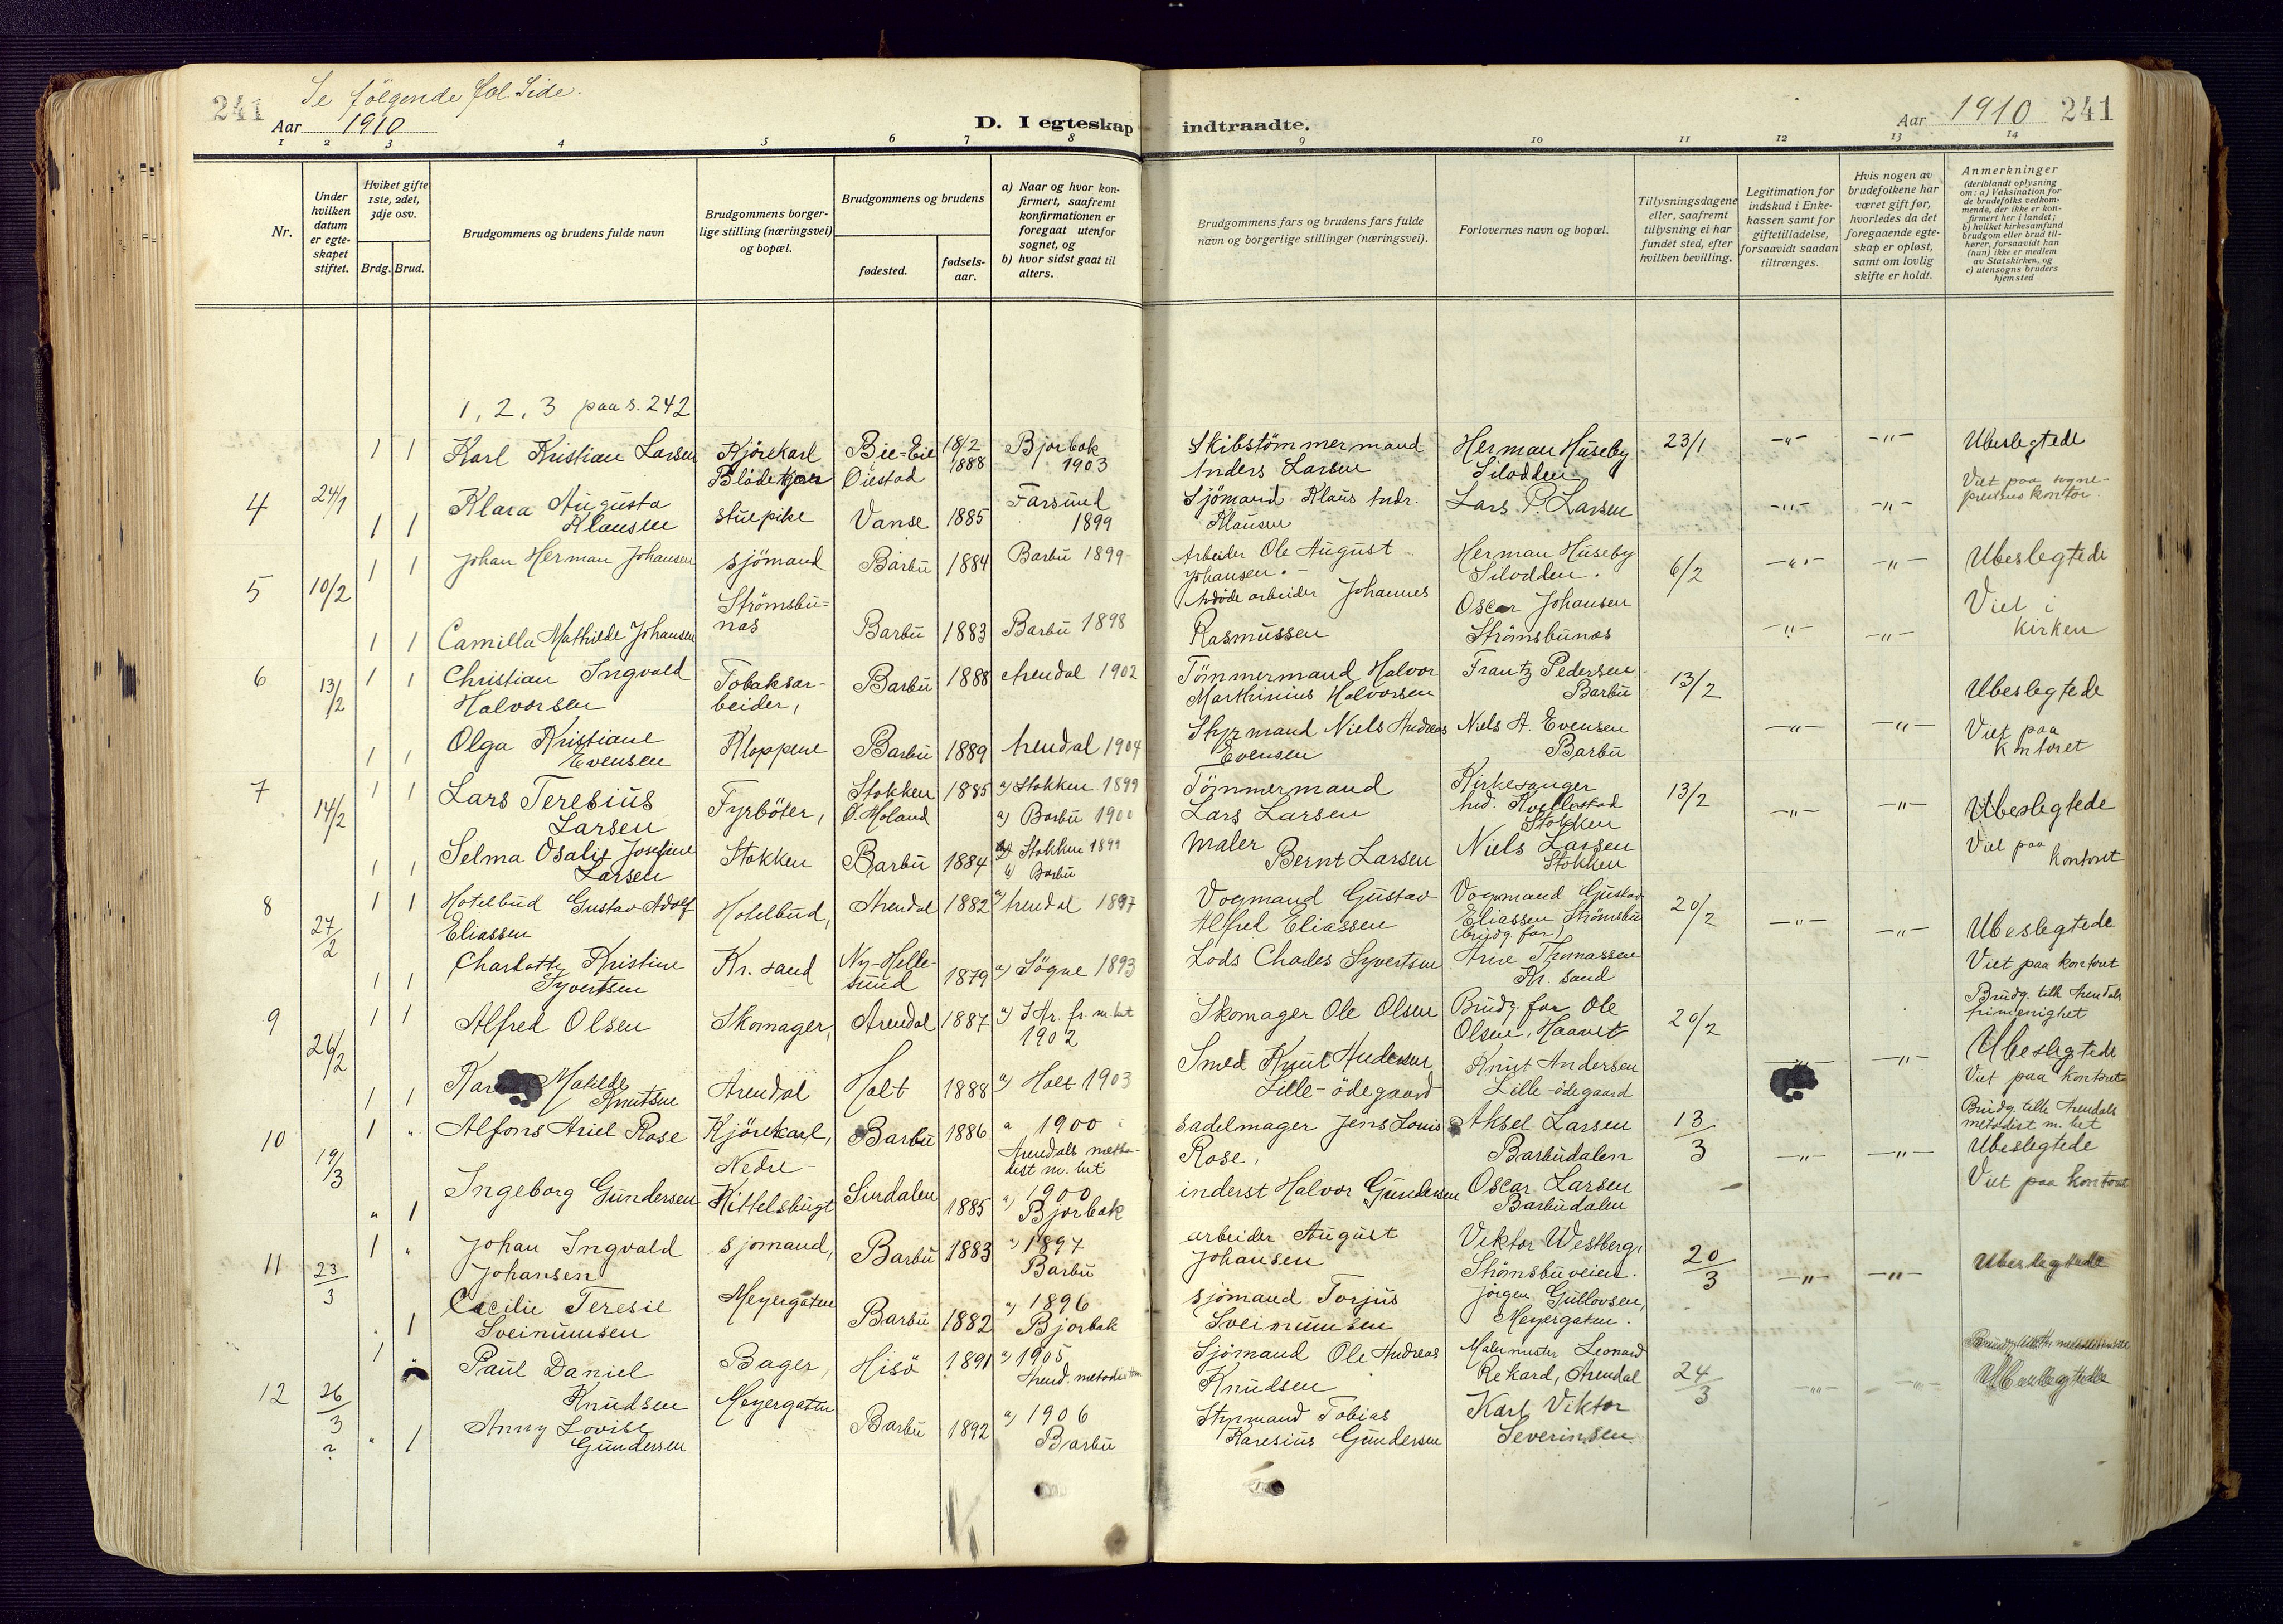 241
Se følgende fol. Side.
Aar 1910
D. I egteskap indtraadte.
Aar 1910 241
1 2 3 4 5 6 7 8 9 10 11 12 13 14
Nr.
Under hvilken datum er egte- skapet stiftet.
Hviket gifte 1ste, 2det, 3dje osv.
Brdg. Brud.
Brudgommens og brudens fulde navn
Brudgommens borger- lige stilling (næringsvei) og bopæl.
Brudgommens og brudens
fødested.
fødsels- aar.
a) Naar og hvor kon- firmert, saafremt konfirmationen er foregaat utenfor sognet, og
b) hvor sidst gaat til alters.
Brudgommens fars og brudens fars fulde navn og borgerlige stillinger (næringsvei).
Forlovernes navn og bopæl.
Tillysningsdagene eller, saafremt tillysning ei har fundet sted, efter hvilken bevilling.
Legitimation for indskud i Enke- kassen samt for giftetilladelse, forsaavidt saadan tiltrænges.
Hvis nogen av brudefolkene har været gift før, hvorledes da det foregaaende egte- skap er opløst, samt om lovlig skifte er holdt.
Anmerkninger
(deriblandt oplysning om: a) Vaksination for de brudefolks vedkom- mende, der ikke er kon- firmert her i landet;
b) hvilket kirkesamfund brudgom eller brud til- hører, forsaavidt han (hun) ikke er medlem av Statskirken, og
c) utensogns bruders hjemsted
1, 2, 3 paa s. 242
4 24/1
1 1 Karl Kristian Larsen Kjørekarl Blödekjær Bie-Eie Öiestad 18/2 1888 Bjorbæk 1903 Skibstömmermand Anders Larsen Herman Huseby Silodden 23/1 -"- -"- Ubeslegtede
1 1 Klara Augusta Klausen stuepike Vanse 1885 Farsund 1899 Sjömand Klaus Andr. Klausen Lars P. Larsen -"- -"- Viet paa sogne- prestens kontor.
5 10/2
1 1 Johan Herman Johansen sjömand Barbu 1884 Barbu 1899 Arbeider Ole August Johansen. Herman Huseby Silodden. 6/2 -"- -"- Ubeslegtede
1 1 Camilla Mathilde Johansen Strömsbu= nes Barbu 1883 Barbu 1898 arbeider Johannes Rasmussen Oscar Johansen Strömsbunes -"- -"- Viet i kirken
6 13/2
1 1 Christian Ingvald Halvorsen Tobaksar- beider, Barbu 1888 Arendal 1902 Tömmermand Halvor Marthinius Halvorsen Frantz Pedersen Barbu 13/2 Ubeslegtede
1 1 Olga Kristiane Evensen Kloppene Barbu 1889 Arendal 1904 Styrmand Niels Andreas Evensen Niels A. Evensen Barbu -"- -"- Viet paa kontoret
7 14/2
1 1 Lars Teresius Larsen Fyrböter, Stokken Ö. Moland 1885 a) Stokken 1899 a) Barbu 1900 Tömmermand Lars Larsen Kirkesanger Stokken 13/2 -"- -"- Ubeslegtede
1 1 Selma Osalie Josefine Larsen Stokken Barbu 1884 Stokken 1899 b) Barbu Maler Bernt Larsen Niels Larsen Stokken Viet paa kontoret
8 27/2
1 1 Hotelbud Gustav Adolf Eliassen Hotelbud, Arendal 1882 a) Arendal 1897 Vognmand Gustav Alfred Eliassen Vognmand Gustav Eliassen Strömsbu (brudg. far) 20/2 -"- -"- Ubeslegtede
1 1 Charlotte Kristine Syvertsen Kr. sand Ny-Helle- sund 1879 a) Søgne 1893 Lods Charles Syvertsen Arne Thomassen Kr. sand Viet paa kontoret
9 26/2
1 1 Alfred Olsen Skomager, Arendal 1887 a) fr. m.het 1902 Skomager Ole Olsen Brudg. far Ole Olsen, Haavet 20/2 Brudg. tilh Arendals frimenighet
1 1 Matilde Knutsen Arendal Holt 1888 a) Holt 1903 Smed Knut Andersen Lille-ödegaard Knut Andersen Lille-ödegaard -"- Ubeslegtede Viet paa kontoret
10 19/3
1 " Alfons Ariel Rose Kjörekarl, Barbu 1886 a 1900 Arendals metho- dist m.het Sadelmager Jens Louis Rose, Aksel Larsen Barbudalen 13/3 -"- -"- Brudg. tilh Arendals metodist m. het Ubeslegtede
" 1 Ingeborg Gundersen Nedre- Kittelsbugt Sirdalen 1885 a) 1900 Bjorbæk inderst Halvor Gundersen Oscar Larsen Barbudalen Viet paa kontoret
11 23/3
1 " Johan Ingvald Johansen sjömand, Barbu 1883 a) 1897 Barbu arbeider August Johansen Viktor Westberg, Strömsbuveien. 20/3 -"- -"- Ubeslegtede
" 1 Cæcilie Teresie Sveinumsen Meyergaten Barbu 1882 a) 1896 Bjorbæk sjömand Torjus Sveinumsen Jörgen Gullovsen, Meyergaten.
12 26/3 ?
1 " Paul Daniel Knudsen Bager, Hisö 1891 a) 1905 Arend. metodist Sjömand Ole Andreas Knudsen Malermester Leonard Rekard, Arendal 24/3 -"- -"- Ubeslegtede
" 1 Anny Lovise Gundersen Meyergaten Barbu 1892 a) 1906 Barbu Styrmand Tobias Gundersen Karl Viktor Severinsen